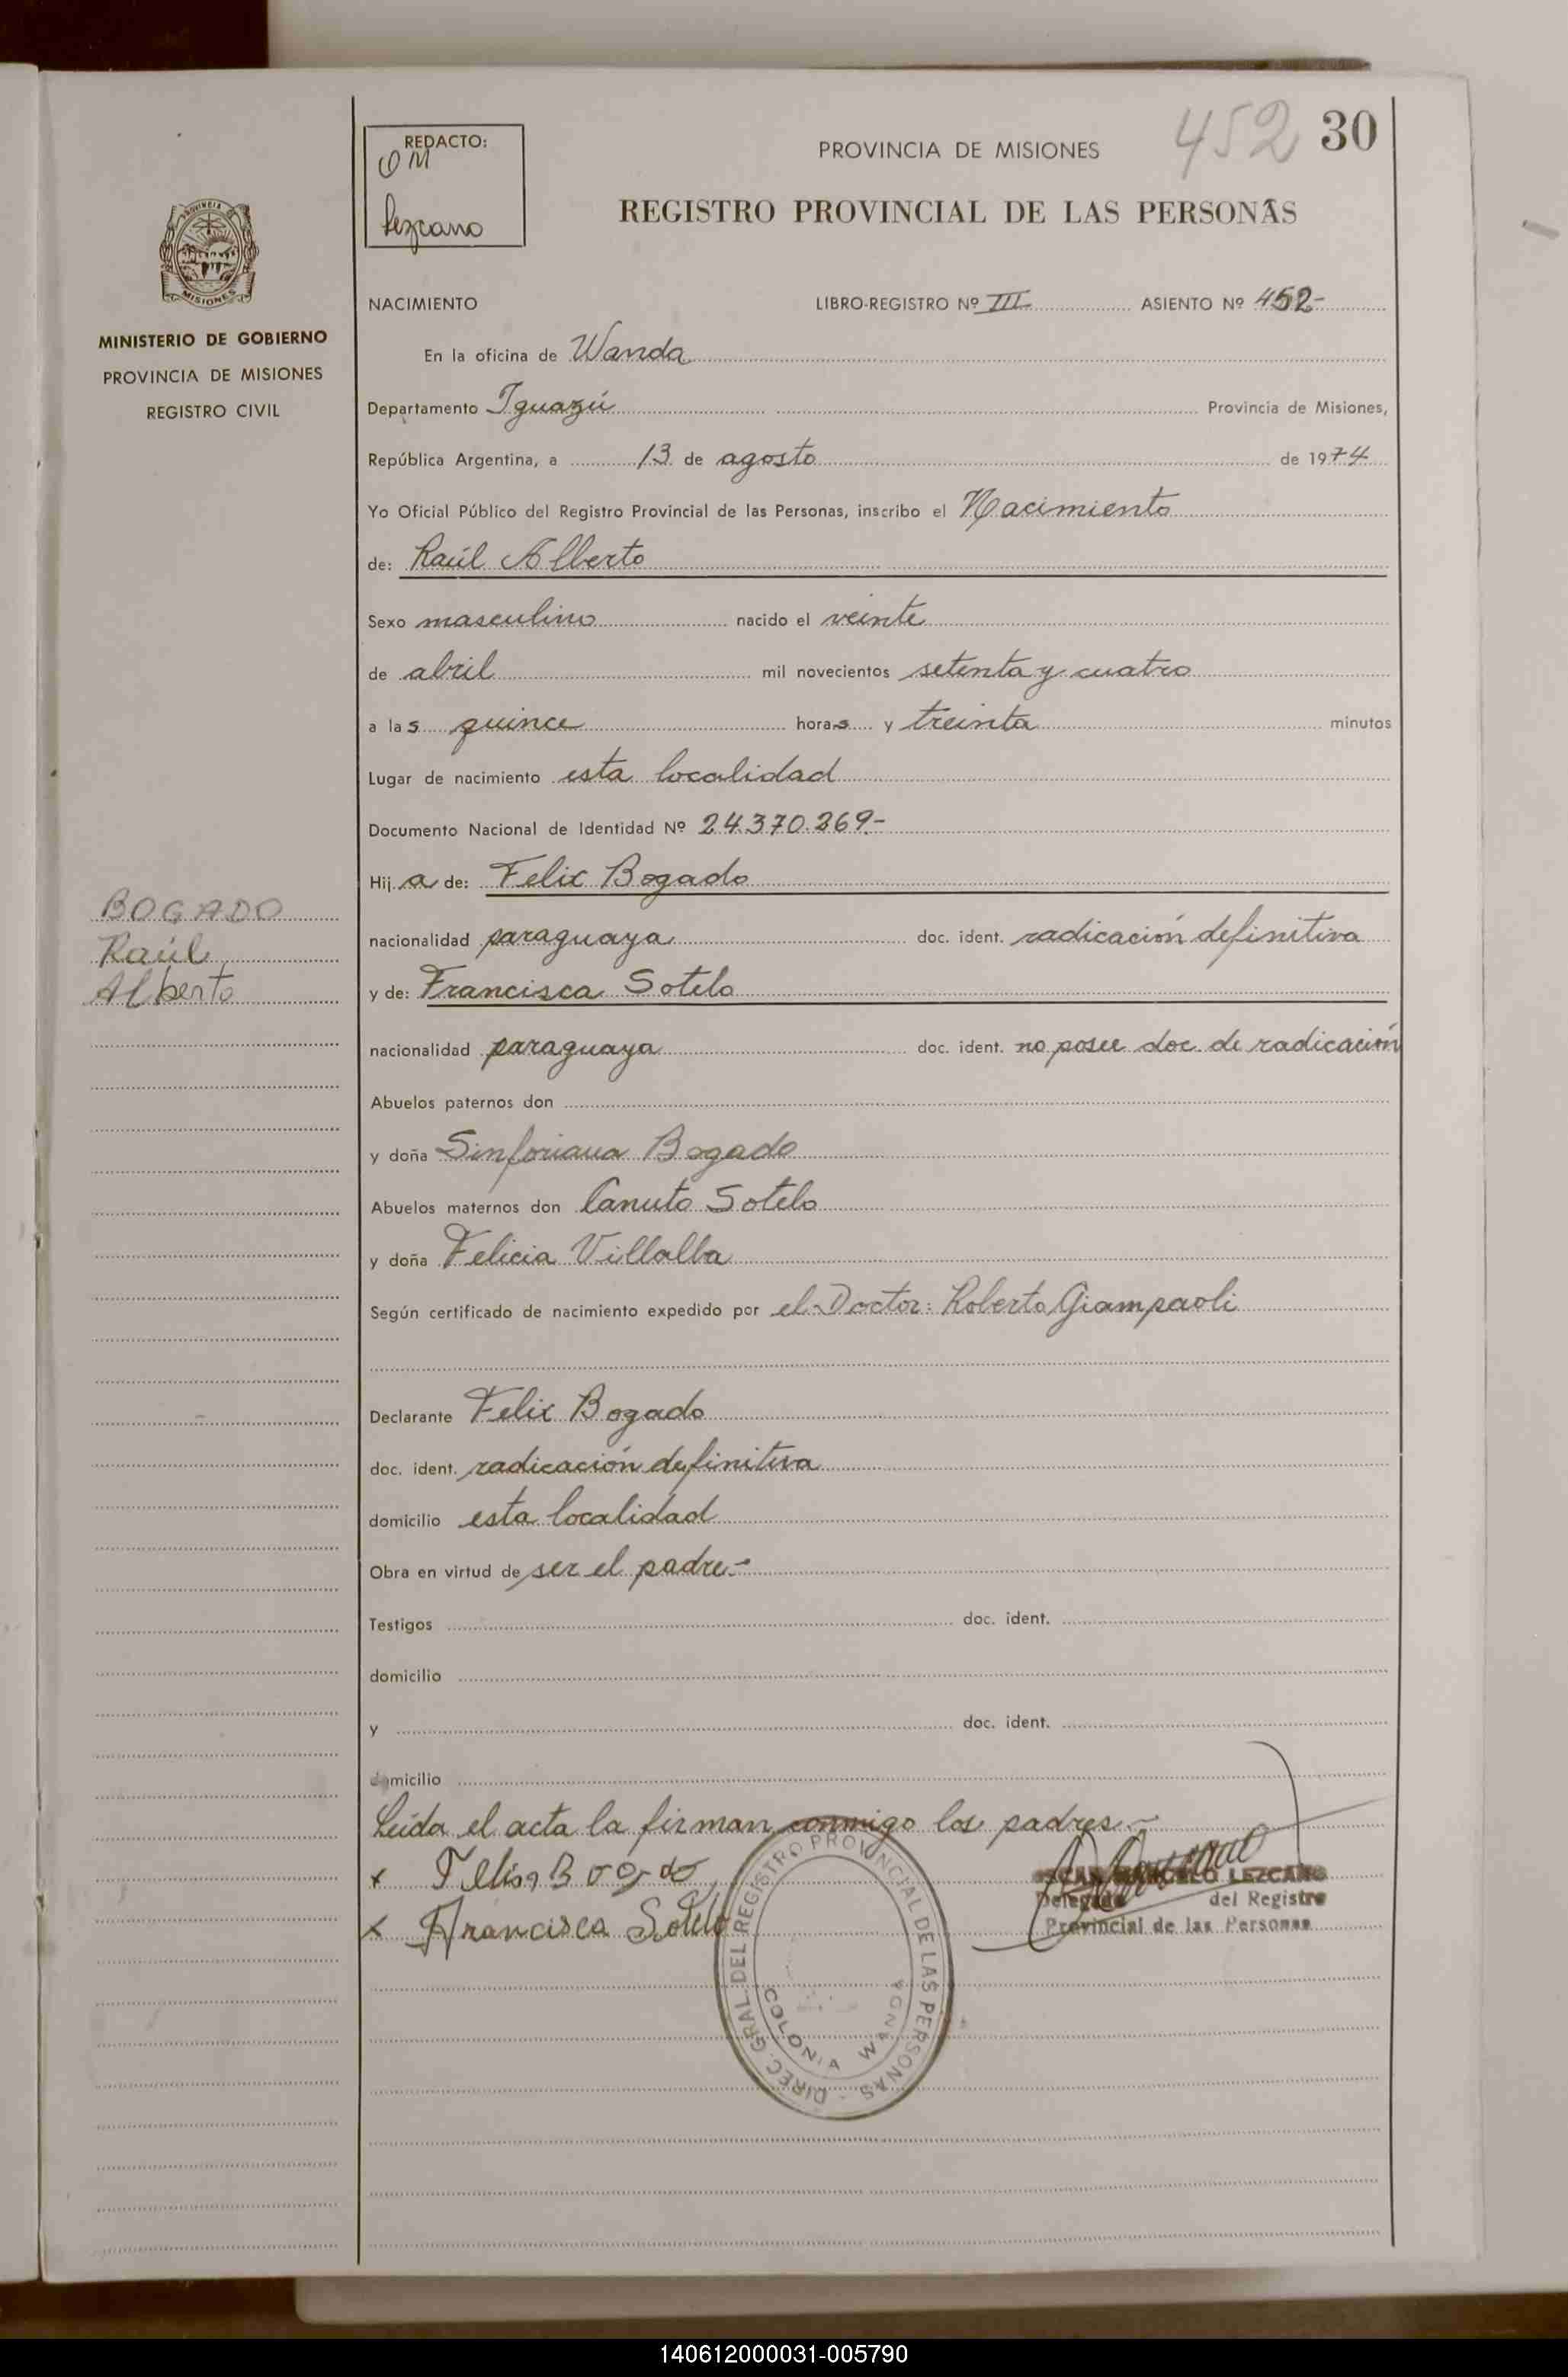 REDACTO:
OM
Lezcano
PROVINCIA DE MISIONES
452 30
REGISTRO PROVINCIAL DE LAS PERSONAS
PROVINCIA DE
MISIONES
MINISTERIO DE GOBIERNO
PROVINCIA DE MISIONES
REGISTRO CIVIL
NACIMIENTO LIBRO-REGISTRO Nº III ASIENTO Nº 452-
En la oficina de Wanda
Departamento Iguazú Provincia de Misiones,
República Argentina, a 13 de agosto de 1974
Yo Oficial Público del Registro Provincial de las Personas, inscribo el Nacimiento
de: Raúl Alberto
Sexo masculino nacido el veinte
de abril mil novecientos setenta y cuatro
a las quince horas y treinta minutos
Lugar de nacimiento esta localidad
Documento Nacional de Identidad Nº 24.370.269-
Hij a de: Felix Bogado
BOGADO
Raúl
Alberto
nacionalidad paraguaya doc. ident. radicación definitiva
y de: Francisca Sotelo
nacionalidad paraguaya doc. ident. no posee doc. de radicación
Abuelos paternos don
y doña Sinforiana Bogado
Abuelos maternos don Canuto Sotelo
y doña Felicia Villalba
Según certificado de nacimiento expedido por el Doctor: Roberto Giampaoli
Declarante Felix Bogado
doc. ident. radicación definitiva
domicilio esta localidad
Obra en virtud de ser el padre-
Testigos doc. ident.
domicilio
y doc. ident.
domicilio
Leída el acta la firman conmigo los padres.-
x
x Francisca Sotelo
MARCELO LEZCANO
Delegado del Registro
Provincial de las Personas
DIREC. GRAL. DEL REGISTRO PROVINCIAL DE LAS PERSONAS -
COLONIA WANDA
140612000031-005790